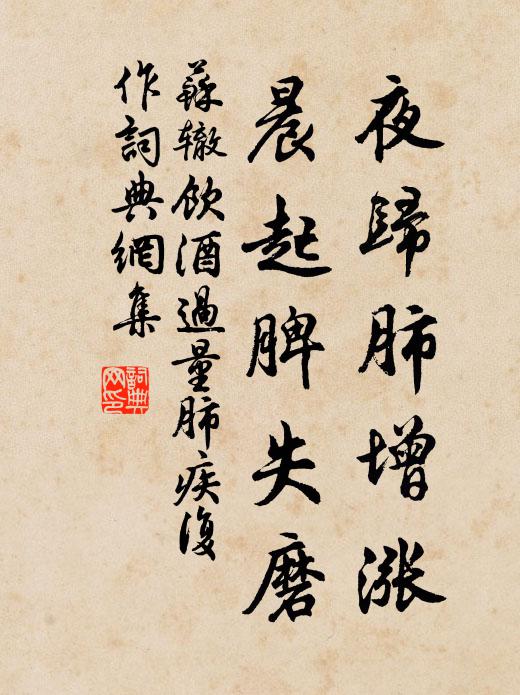 夜歸肺增漲
晨起脾失磨
蘇轍飲酒過量肺疾復
作詞典網集
詞典
网印